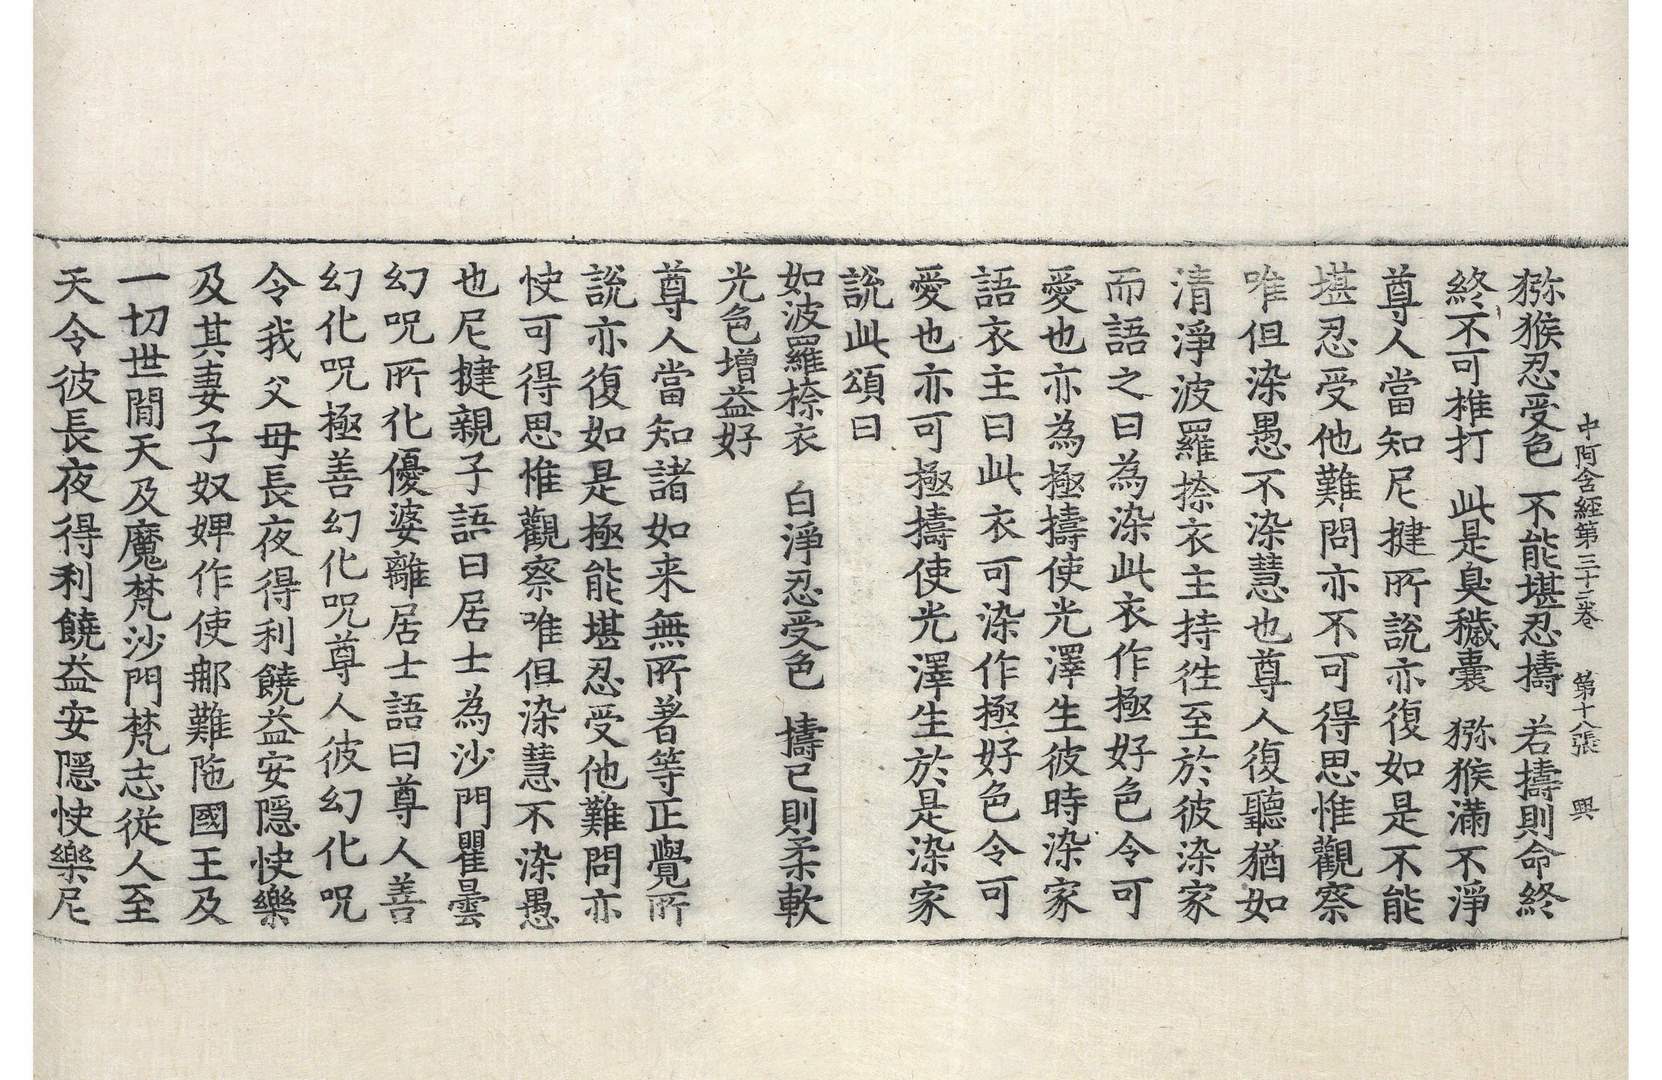 中阿含經第三十二卷 第十八張 興
猕猴忍受色 不能堪忍擣 若擣則命終
終不可椎打 此是臭穢囊 猕猴滿不淨
尊人當知尼揵所說亦復如是不能
堪忍受他難問亦不可得思惟觀察
唯但染愚不染慧也尊人復聽猶如
清淨波羅㮈衣主持往至於彼染家
而語之曰為染此衣作極好色令可
愛也亦為極擣使光澤生彼時染家
語衣主曰此衣可染作極好色令可
愛也亦可極擣使光澤生於是染家
說此頌曰
如波羅㮈衣 白淨忍受色 擣已則柔軟
光色增益好
尊人當知諸如来無所著等正覺所
說亦復如是極能堪忍受他難問亦
快可得思惟觀察唯但染慧不染愚
也尼揵親子語曰居士為沙門瞿曇
幻呪所化優婆離居士語曰尊人善
幻化呪極善幻化呪尊人彼幻化呪
令我父母長夜得利饒益安隱快樂
及其妻子奴婢作使那難陁國王及
一切世間天及魔梵沙門梵志從人至
天令彼長夜得利饒益安隱快樂尼